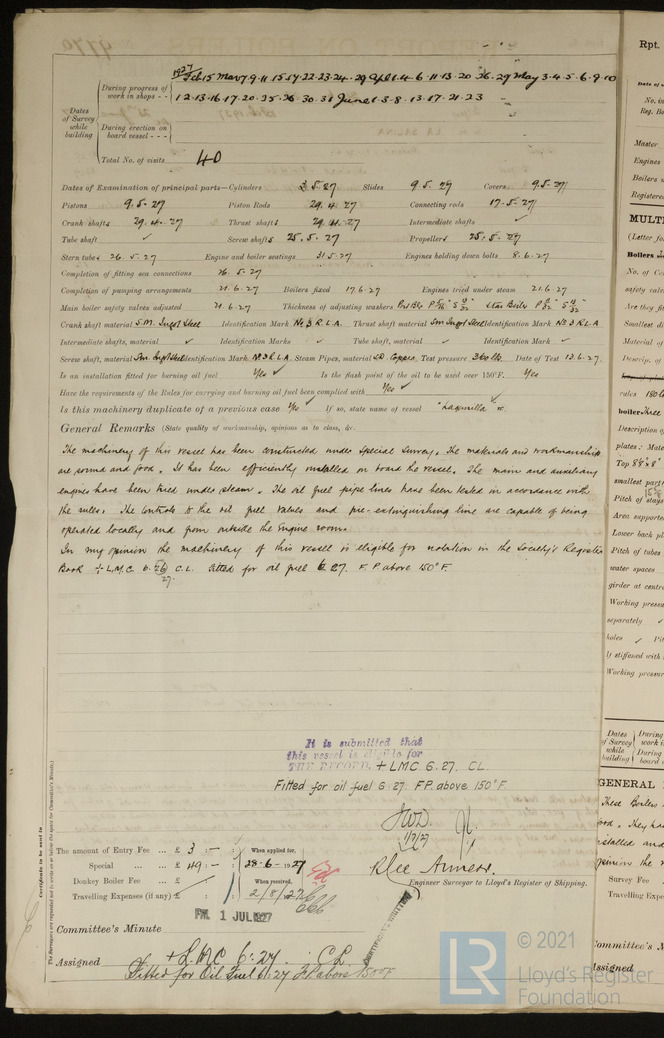 1927
Feb 15 Mar 7 9 11 15 17 22 23 24 29 Apl 1 4 6 11 13 20 26 29 May 3 4 5 6 9 10
12 13 16 17 20 25 26 30 31 June 1 3 8 13 17 21 23
During progress of work in shops - -
Dates of Survey while building
During erection on board vessel - - -
Total No. of visits 40
Dates of Examination of principal parts—Cylinders 3.5.27 Slides 9.5.27 Covers 9.5.27
Pistons 9.5.27 Piston Rods 29.4.27 Connecting rods 17.5.27
Crank shafts 29.4.27 Thrust shafts 29.4.27 Intermediate shafts ✓
Tube shaft ✓ Screw shafts 25.5.27 Propellers 25.5.27
Stern tubes 26.5.27 Engine and boiler seatings 31.5.27 Engines holding down bolts 8.6.27
Completion of fitting sea connections 26.5.27
Completion of pumping arrangements 21.6.27 Boilers fixed 17.6.27 Engines tried under steam 21.6.27
Main boiler safety valves adjusted 21.6.27 Thickness of adjusting washers Port Blr Star Boiler
Crank shaft material S.M. Ingot Steel Identification Mark No 3 R.L.A. Thrust shaft material Sm Ingot Steel Identification Mark No 3 R.L.A
Intermediate shafts, material ✓ Identification Marks ✓ Tube shaft, material ✓ Identification Mark ✓
Screw shaft, material Sm Ingot Steel Identification Mark No 3 R.L.A. Steam Pipes, material S.D. Copper Test pressure 360 lbs Date of Test 13.6.27.
Is an installation fitted for burning oil fuel Yes ✓ Is the flash point of the oil to be used over 150°F. Yes
Have the requirements of the Rules for carrying and burning oil fuel been complied with Yes ✓
Is this machinery duplicate of a previous case Yes ✓ If so, state name of vessel
General Remarks (State quality of workmanship, opinions as to class, &c.
The machinery of this vessel has been constructed under special survey. The materials and workmanship
are sound and good. It has been efficiently installed on board the vessel. The main and auxiliary
engines have been tried under steam. The oil fuel pipe lines have been tested in accordance with
the rules. The controls to the oil fuel valves and fire-extinguishing line are capable of being
operated locally and from outside the Engine room.
In my opinion the machinery of this vessel is eligible for notation in the Society's Register
Book + L.M.C. 6.26 C.L. fitted for oil fuel 6 27. F.P. above 150°F.
27.
It is submitted that
this vessel is eligible for
THE RECORD. + LMC 6.27. CL.
Fitted for oil fuel 6.27. F.P. above 150°F.
1/7/27
The amount of Entry Fee ... £ 3 : - When applied for,
Special ... ... £ 49 : - 28.6.1927
Donkey Boiler Fee ... £ When received,
Travelling Expenses (if any) £ 2/8/27
Engineer Surveyor to Lloyd's Register of Shipping.
FRI. 1 JUL 1927
CERTIFICATE WRITTEN
Committee's Minute
Assigned + L.M.C 6.27 C.L.
Fitted for Oil Fuel 6.27 F.P. above 150°F
Certificate to be sent to
(The Surveyors are requested not to write on or below the space for Committee's Minute.)
Rpt.
Master
Engines
Boilers
Registered
MULT
(Letter fo
Boilers
No. of Ce
safety valv
Are they fi
Smallest d
Material of
Descrip. of
rules 180
boiler
Description of
plates: Mate
smallest part
Pitch of stays
Area supporte
Lower back pl
Pitch of tubes
water spaces
girder at centre
Working pressu
separately ✓
holes ✓ Pit
If stiffened with
Working pressur
Dates of Survey while building
During work i
During board
GENERAL
These Boilers
Survey Fee
Travelling Expe
Committee's M
Assigned
LR
© 2021
Lloyd's Register
Foundation